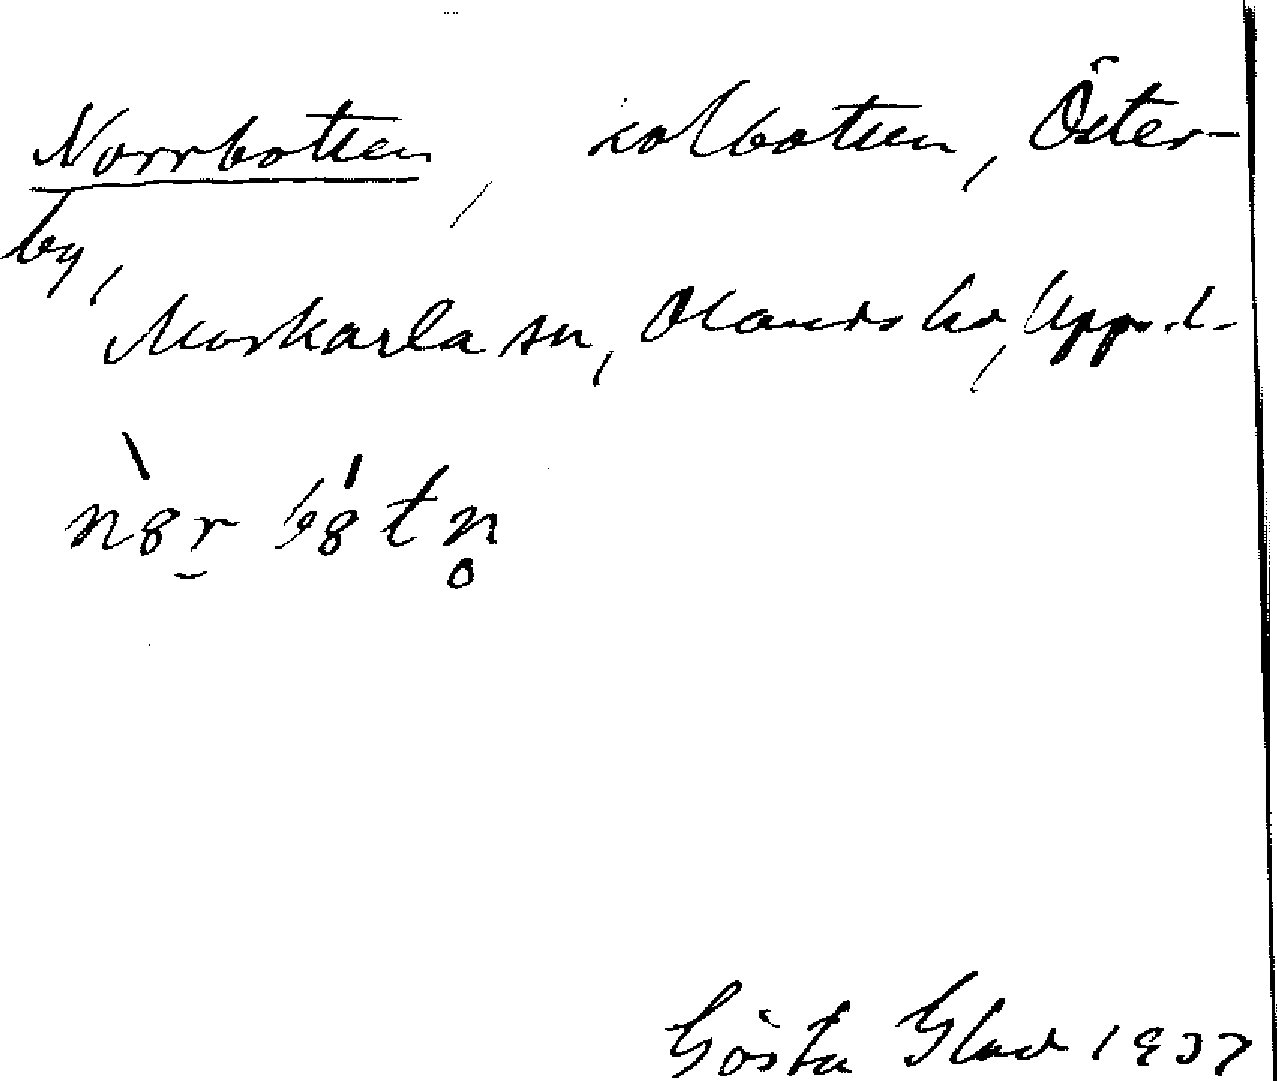 Norrbotten, kolbotten, Öster-
by,
Morkarla sn, Olands hd, Upps. l.
n8r b8tn
Gösta Glad 1937